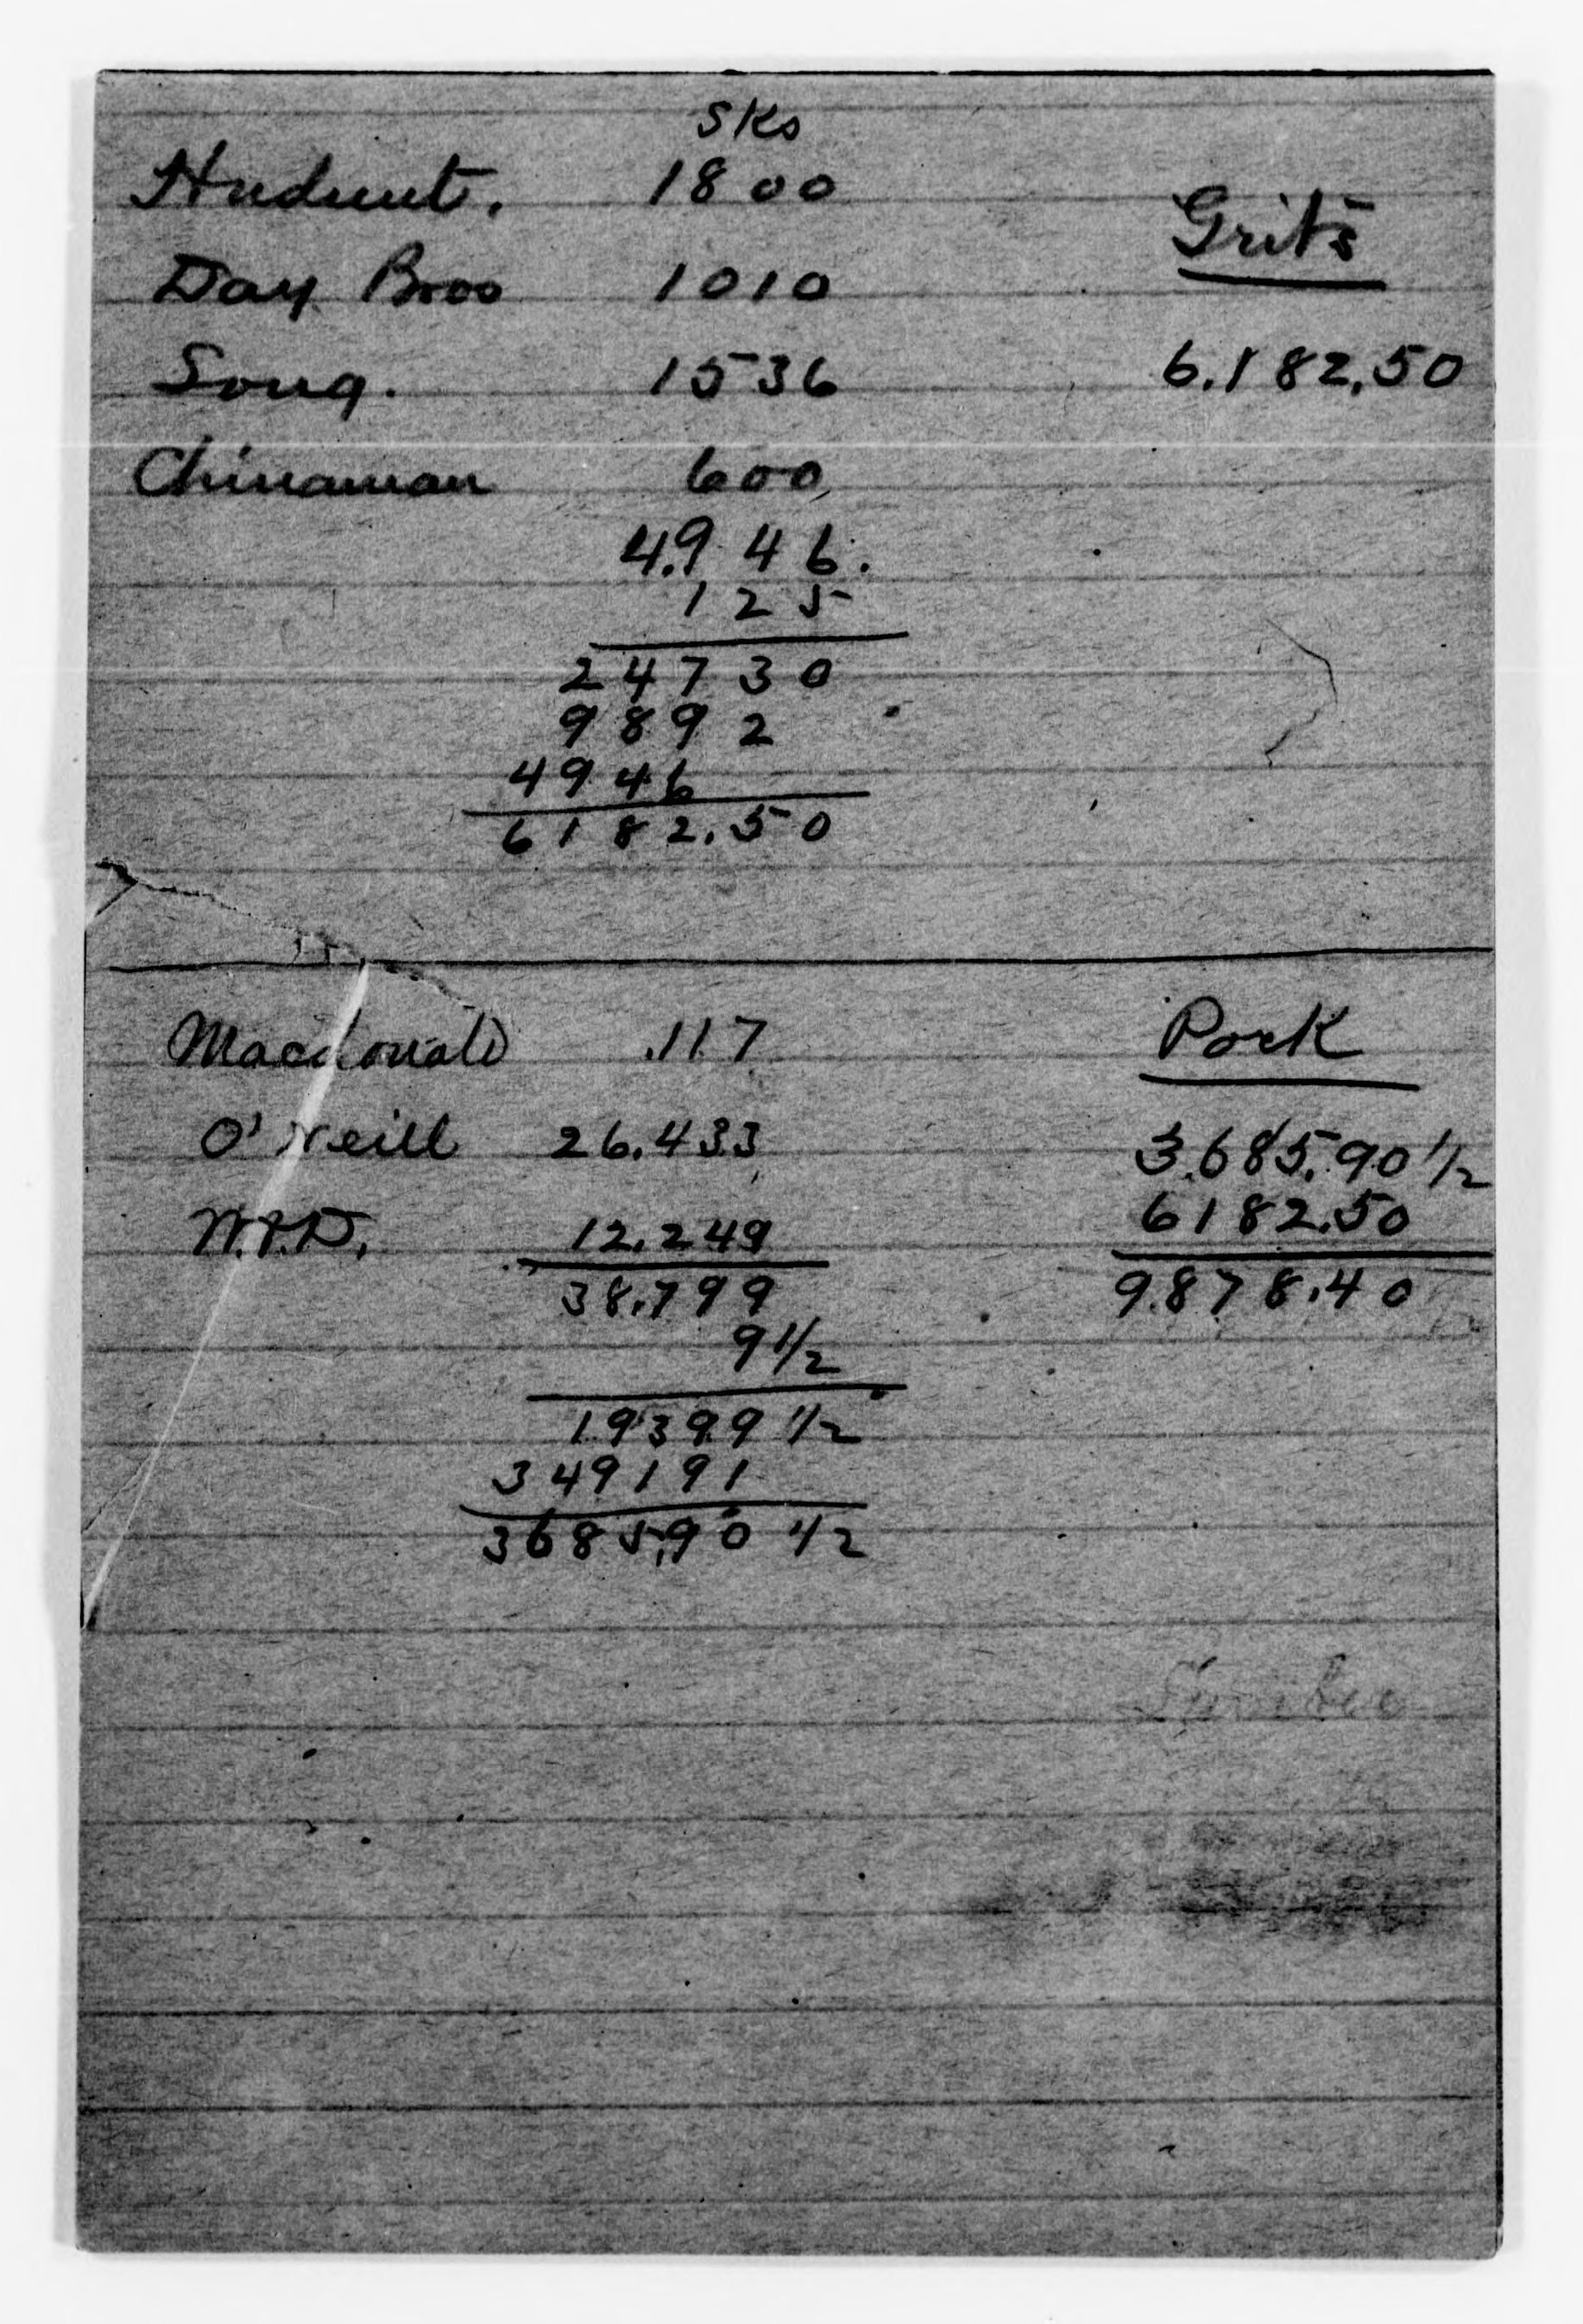 Sks
Hudnut. 1800
Grits
Day Bros 1010
Song. 1536 6.182.50
Chinaman 600
4.946.
125
24730
9892
4946
6182.50
Macdonald .117 Pork
O'Neill 26.433 3.685.90 1/2
12.249 6182.50
38.799 9.878.40
9 1/2
19399 1/2
349191
3685.90 1/2